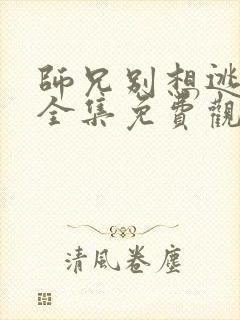 師兄別想逃
全集免費觀
清風卷塵